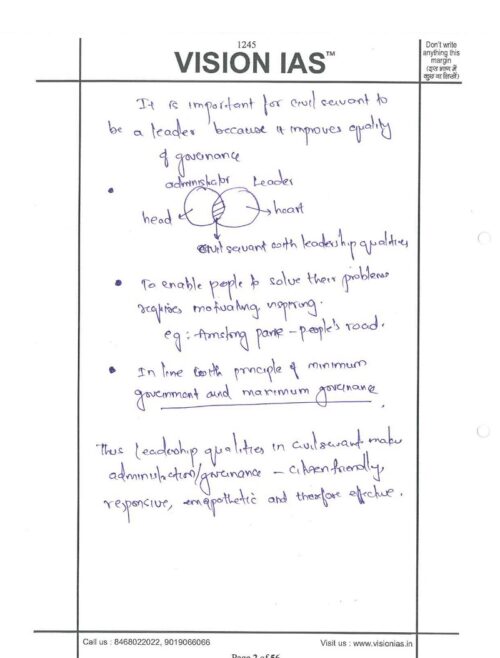 1245
VISION IAS™
Don't write
anything this
margin
(इस भाग में
कुछ ना लिखें)
It is important for civil servant to
be a leader because it improves quality
of governance
administrator Leader
head heart
civil servant with leadership qualities
• To enable people to solve their problems
requires motivating, inspiring.
eg: Amstrong pame - people's road.
• In line with principle of minimum
government and maximum governance.
Thus leadership qualities in civil servant make
administration/governance - citizen friendly,
responsive, emapathetic and therefore effective.
Call us : 8468022022, 9019066066
Visit us : www.visionias.in
Page 2 of 56